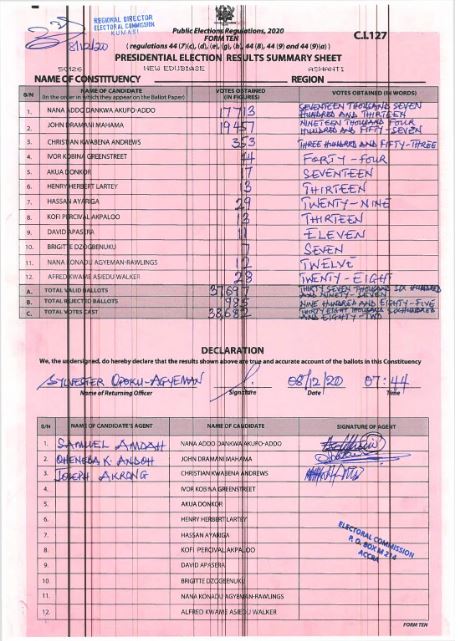 REGIONAL DIRECTOR
ELECTORAL COMMISSION
KUMASI
8/12/20
Public Elections Regulations, 2020
FORM TEN
C.I.127
( regulations 44 (7)(c), (d), (e), (g), (h), 44 (8), 44 (9) and 44 (9)(a) )
PRESIDENTIAL ELECTION RESULTS SUMMARY SHEET
NEW EDUBIASE ASHANTI
NAME OF CONSTITUENCY REGION
S/N NAME OF CANDIDATE (In the order in which they appear on the Ballot Paper) VOTES OBTAINED (IN FIGURES) VOTES OBTAINED (IN WORDS)
1. NANA ADDO DANKWA AKUFO-ADDO 17713 SEVENTEEN THOUSAND SEVEN HUNDRED AND THIRTEEN
2. JOHN DRAMANI MAHAMA 19457 NINETEEN THOUSAND FOUR HUNDRED AND FIFTY-SEVEN
3. CHRISTIAN KWABENA ANDREWS 353 THREE HUNDRED AND FIFTY-THREE
4. IVOR KOBINA GREENSTREET 44 FORTY-FOUR
5. AKUA DONKOR 17 SEVENTEEN
6. HENRY HERBERT LARTEY 13 THIRTEEN
7. HASSAN AYARIGA 29 TWENTY-NINE
8. KOFI PERCIVAL AKPALOO 13 THIRTEEN
9. DAVID APASERA 11 ELEVEN
10. BRIGITTE DZOGBENUKU 7 SEVEN
11. NANA KONADU AGYEMAN-RAWLINGS 12 TWELVE
12. ALFRED KWAME ASIEDU WALKER 28 TWENTY-EIGHT
A. TOTAL VALID BALLOTS 37697 THIRTY SEVEN THOUSAND SIX HUNDRED AND NINETY-SEVEN
B. TOTAL REJECTED BALLOTS 985 NINE HUNDRED AND EIGHTY-FIVE
C. TOTAL VOTES CAST 38682 THIRTY EIGHT THOUSAND SIX HUNDRED AND EIGHTY-TWO
DECLARATION
We, the undersigned, do hereby declare that the results shown above are true and accurate account of the ballots in this Constituency
SYLVESTER OPOKU-AGYEMAN 08/12/20 07:44
Name of Returning Officer Signature Date Time
S/N NAME OF CANDIDATE'S AGENT NAME OF CANDIDATE SIGNATURE OF AGENT
1. SAMUEL AMOAH NANA ADDO DANKWA AKUFO-ADDO
2. OHENEBA K. ANDOH JOHN DRAMANI MAHAMA
3. JOSEPH AKRONG CHRISTIAN KWABENA ANDREWS
4. IVOR KOBINA GREENSTREET
5. AKUA DONKOR
6. HENRY HERBERT LARTEY
7. HASSAN AYARIGA
8. KOFI PERCIVAL AKPALOO
9. DAVID APASERA
10. BRIGITTE DZOGBENUKU
11. NANA KONADU AGYEMAN-RAWLINGS
12. ALFRED KWAME ASIEDU WALKER
ELECTORAL COMMISSION
P. O. BOX M 214
ACCRA
FORM TEN